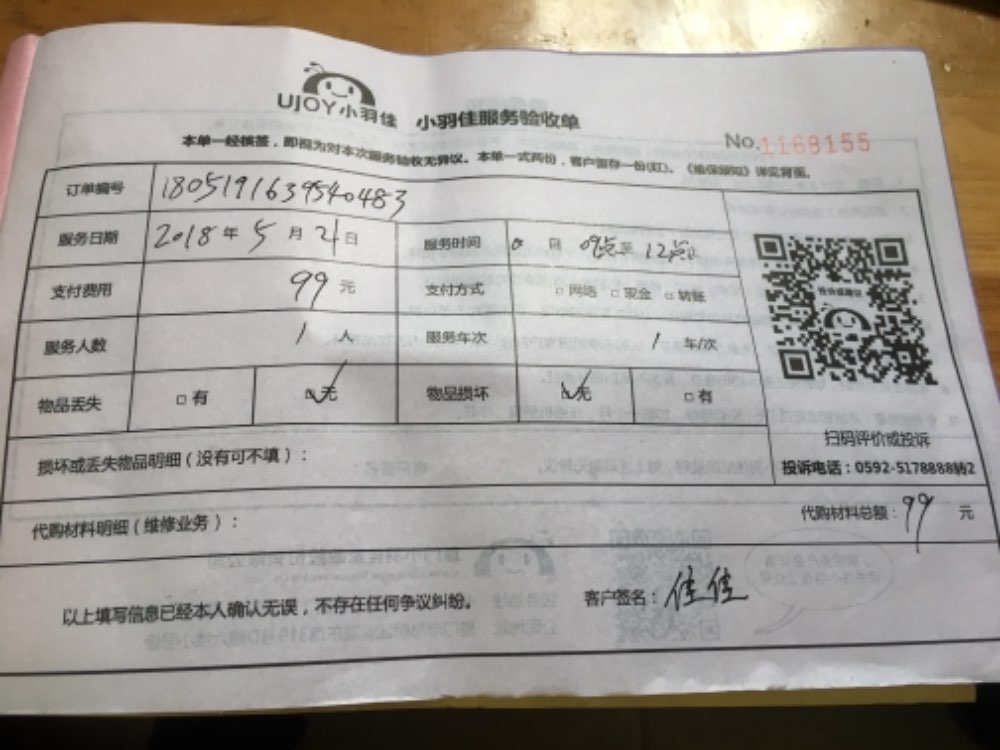 UJOY小羽佳 小羽佳服务验收单
No.1168155
本单一经核签，即视为对本次服务验收无异议。本单一式两份，客户留存一份(红)。《维保须知》详见背面。
订单编号 1805191639540483
服务日期 2018年5月21日 服务时间 日 09点至12点
支付费用 99元 支付方式 □网络 □现金 □转账
服务人数 1人 服务车次 1车/次
物品丢失 □有 ☑无 物品损坏 ☑无 □有
扫码评价或投诉
损坏或丢失物品明细（没有可不填）：
投诉电话：0592-5178888转2
代购材料明细（维修业务）： 代购材料总额：99元
以上填写信息已经本人确认无误，不存在任何争议纠纷。 客户签名：佳佳